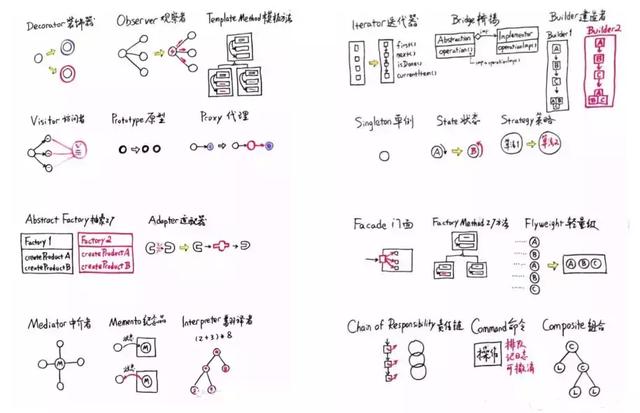 Decorator 装饰器
Observer 观察者
Template Method 模板方法
Iterator 迭代器
first()
next()
isDone()
currentItem()
Bridge 桥接
Abstraction
operation()
imp
Implementor
operationImp()
imp.operationImp()
Builder 建造者
Builder1
A
B
C
A B
C
Builder2
A
B
C
A
B C
Visitor 访问者
V
Prototype 原型
Proxy 代理
Singleton 单例
State 状态
A
B
Strategy 策略
算法1
算法2
Abstract Factory 抽象工厂
Factory 1
createProduct A
createProduct B
Factory 2
createProduct A
createProduct B
Adapter 适配器
Facade 门面
Factory Method 工厂方法
Flyweight 轻量级
A
B
A
B
C
A B C
Mediator 中介者
M
Memento 纪念品
状态
M
状态
M
Interpreter 翻译者
(2+3)*8
Chain of Responsibility 责任链
Command 命令
操作
排队
记日志
可撤消
Composite 组合
C
L
C
L
L